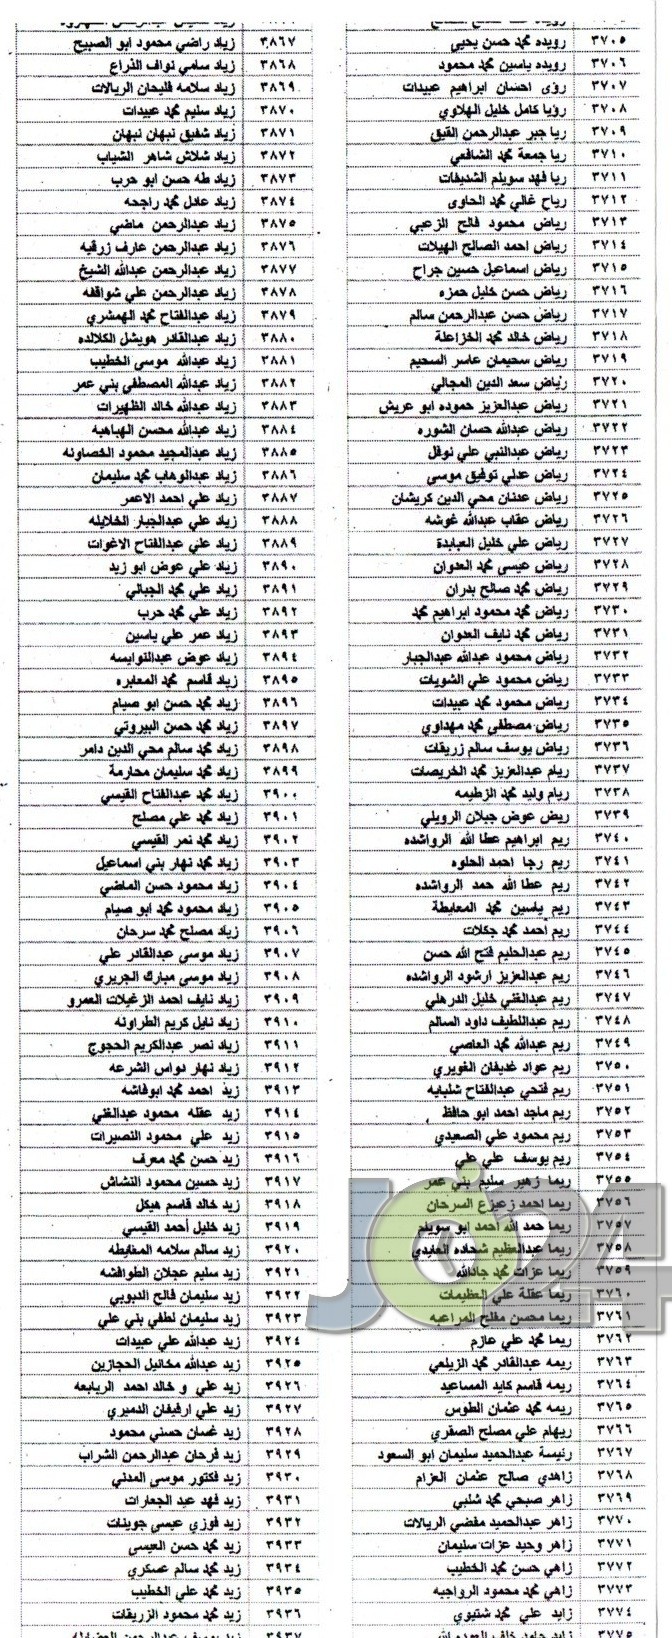 ٣٧٠٥ رويده محمد حسن يحيى
٣٧٠٦ رويده ياسين محمد محمود
٣٧٠٧ رؤى احسان ابراهيم عبيدات
٣٧٠٨ رويا كامل خليل الهلاوي
٣٧٠٩ ريا جبر عبدالرحمن القيق
٣٧١٠ ريا جمعة محمد الشافعي
٣٧١١ ريا فهد سويلم الشديفات
٣٧١٢ رياح غالي محمد الحاوى
٣٧١٣ رياض محمود فالح الزعبي
٣٧١٤ رياض احمد الصالح الهيلات
٣٧١٥ رياض اسماعيل حسين جراح
٣٧١٦ رياض حسن خليل حمزه
٣٧١٧ رياض حسن عبدالرحمن سالم
٣٧١٨ رياض خالد محمد الخزاعلة
٣٧١٩ رياض سحيمان عاسر السحيم
٣٧٢٠ رياض سعد الدين المجالي
٣٧٢١ رياض عبدالعزيز حموده ابو عريش
٣٧٢٢ رياض عبدالله حسان الشوره
٣٧٢٣ رياض عبدالنبي علي نوفل
٣٧٢٤ رياض عدلي توفيق موسى
٣٧٢٥ رياض عدنان محي الدين كريشان
٣٧٢٦ رياض عقاب عبدالله غوشه
٣٧٢٧ رياض علي خليل العبابدة
٣٧٢٨ رياض عيسى محمد العدوان
٣٧٢٩ رياض محمد صالح بدران
٣٧٣٠ رياض محمد محمود ابراهيم محمد
٣٧٣١ رياض محمد نايف العدوان
٣٧٣٢ رياض محمود عبدالله عبدالجبار
٣٧٣٣ رياض محمود علي الشويات
٣٧٣٤ رياض محمود محمد عبيدات
٣٧٣٥ رياض مصطفى محمد مهداوي
٣٧٣٦ رياض يوسف سالم زريقات
٣٧٣٧ ريام عبدالعزيز محمد الخريصات
٣٧٣٨ ريام وليد محمد الزطيمه
٣٧٣٩ ريض عوض جبلان الرويلي
٣٧٤٠ ريم ابراهيم عطا الله الرواشده
٣٧٤١ ريم رجا احمد الحلوه
٣٧٤٢ ريم عطا الله حمد الرواشده
٣٧٤٣ ريم ياسين محمد المعايطة
٣٧٤٤ ريم احمد محمد جكلات
٣٧٤٥ ريم عبدالحليم فتح الله حسن
٣٧٤٦ ريم عبدالعزيز ارشود الرواشده
٣٧٤٧ ريم عبدالغني خليل الدرهلي
٣٧٤٨ ريم عبداللطيف داود السالم
٣٧٤٩ ريم عبدالله محمد العاصي
٣٧٥٠ ريم عواد غديفان الغويري
٣٧٥١ ريم فتحي عبدالفتاح شلبايه
٣٧٥٢ ريم ماجد احمد ابو حافظ
٣٧٥٣ ريم محمود علي الصعيدي
٣٧٥٤ ريم يوسف علي علي
٣٧٥٥ ريما زهير سليم بني عمر
٣٧٥٦ ريما احمد زعيزع السرحان
٣٧٥٧ ريما حمد الله احمد ابو سويلم
٣٧٥٨ ريما عبدالعظيم شحاده العابدي
٣٧٥٩ ريما عزات محمد جادالله
٣٧٦٠ ريما عقلة علي العظيمات
٣٧٦١ ريما محسن مفلح المراعيه
٣٧٦٢ ريما محمد علي عازم
٣٧٦٣ ريمه عبدالقادر محمد الزيلعي
٣٧٦٤ ريمه قاسم كايد المساعيد
٣٧٦٥ ريمه محمد عثمان الطوس
٣٧٦٦ ريهام علي مصلح الصقري
٣٧٦٧ رئيسة عبدالحميد سليمان ابو السعود
٣٧٦٨ زاهدي صالح عثمان العزام
٣٧٦٩ زاهر صبحي محمد شلبي
٣٧٧٠ زاهر عبدالحميد مفضي الريالات
٣٧٧١ زاهر وحيد عزات سليمان
٣٧٧٢ زاهي حسن محمد الخطيب
٣٧٧٣ زاهي محمد محمود الرواجبه
٣٧٧٤ زايد علي محمد شتيوي
٣٧٧٥ زايد حامد خلف
٣٨٦٧ زياد راضي محمود ابو الصبيح
٣٨٦٨ زياد سامي نواف الذراع
٣٨٦٩ زياد سلامه فليحان الريالات
٣٨٧٠ زياد سليم محمد عبيدات
٣٨٧١ زياد شفيق نبهان نبهان
٣٨٧٢ زياد شلاش شاهر الشياب
٣٨٧٣ زياد طه حسن ابو حرب
٣٨٧٤ زياد عادل محمد راجحه
٣٨٧٥ زياد عبدالرحمن ماضي
٣٨٧٦ زياد عبدالرحمن عارف زرقيه
٣٨٧٧ زياد عبدالرحمن عبدالله الشيخ
٣٨٧٨ زياد عبدالرحمن علي شواقفه
٣٨٧٩ زياد عبدالفتاح محمد الهمشري
٣٨٨٠ زياد عبدالقادر هويشل الكلالده
٣٨٨١ زياد عبدالله موسى الخطيب
٣٨٨٢ زياد عبدالله المصطفى بني عمر
٣٨٨٣ زياد عبدالله خالد الظهيرات
٣٨٨٤ زياد عبدالله محسن الهباهبه
٣٨٨٥ زياد عبدالمجيد محمود الخصاونه
٣٨٨٦ زياد عبدالوهاب محمد سليمان
٣٨٨٧ زياد علي احمد الاعمر
٣٨٨٨ زياد علي عبدالجبار الخلايله
٣٨٨٩ زياد علي عبدالفتاح الاغوات
٣٨٩٠ زياد علي عوض ابو زيد
٣٨٩١ زياد علي محمد الجبالي
٣٨٩٢ زياد علي محمد حرب
٣٨٩٣ زياد عمر علي ياسين
٣٨٩٤ زياد عوض عبدالنوايسه
٣٨٩٥ زياد قاسم محمد المعابره
٣٨٩٦ زياد محمد حسن ابو صيام
٣٨٩٧ زياد محمد حسن البيروتي
٣٨٩٨ زياد محمد سالم محي الدين دامر
٣٨٩٩ زياد محمد سليمان محارمة
٣٩٠٠ زياد محمد عبدالفتاح القيسي
٣٩٠١ زياد محمد علي مصلح
٣٩٠٢ زياد محمد نمر القيسي
٣٩٠٣ زياد محمد نهار بني اسماعيل
٣٩٠٤ زياد محمود حسن الماضي
٣٩٠٥ زياد محمود محمد ابو صيام
٣٩٠٦ زياد مصلح محمد سرحان
٣٩٠٧ زياد موسى عبدالقادر علي
٣٩٠٨ زياد موسى مبارك الجريري
٣٩٠٩ زياد نايف احمد الزغيلات العمرو
٣٩١٠ زياد نايل كريم الطراونه
٣٩١١ زياد نصر عبدالكريم الحجوج
٣٩١٢ زياد نهار دواس الشرعه
٣٩١٣ زيد احمد محمد ابوفاشه
٣٩١٤ زيد عقله محمود عبدالغني
٣٩١٥ زيد علي محمود النصيرات
٣٩١٦ زيد حسن محمد معرف
٣٩١٧ زيد حسين محمود النشاش
٣٩١٨ زيد خالد قاسم هيكل
٣٩١٩ زيد خليل أحمد القيسي
٣٩٢٠ زيد سالم سلامه المغايطه
٣٩٢١ زيد سليم عجلان الطوافشه
٣٩٢٢ زيد سليمان فالح الدبوبي
٣٩٢٣ زيد سليمان لطفي بني علي
٣٩٢٤ زيد عبدالله علي عبيدات
٣٩٢٥ زيد عبدالله مخائيل الحجازين
٣٩٢٦ زيد علي و خالد احمد الربابعه
٣٩٢٧ زيد علي ارفيفان الدميري
٣٩٢٨ زيد غسان حسني محمود
٣٩٢٩ زيد فرحان عبدالرحمن الشراب
٣٩٣٠ زيد فكتور موسى المدني
٣٩٣١ زيد فهد عبد الجعارات
٣٩٣٢ زيد فوزي عيسى جوينات
٣٩٣٣ زيد محمد حسن العيسى
٣٩٣٤ زيد محمد سالم عسكري
٣٩٣٥ زيد محمد علي الخطيب
٣٩٣٦ زيد محمد محمود الزريقات
٣٩٣٧ زيد يوسف عبدالرحمن
JO24